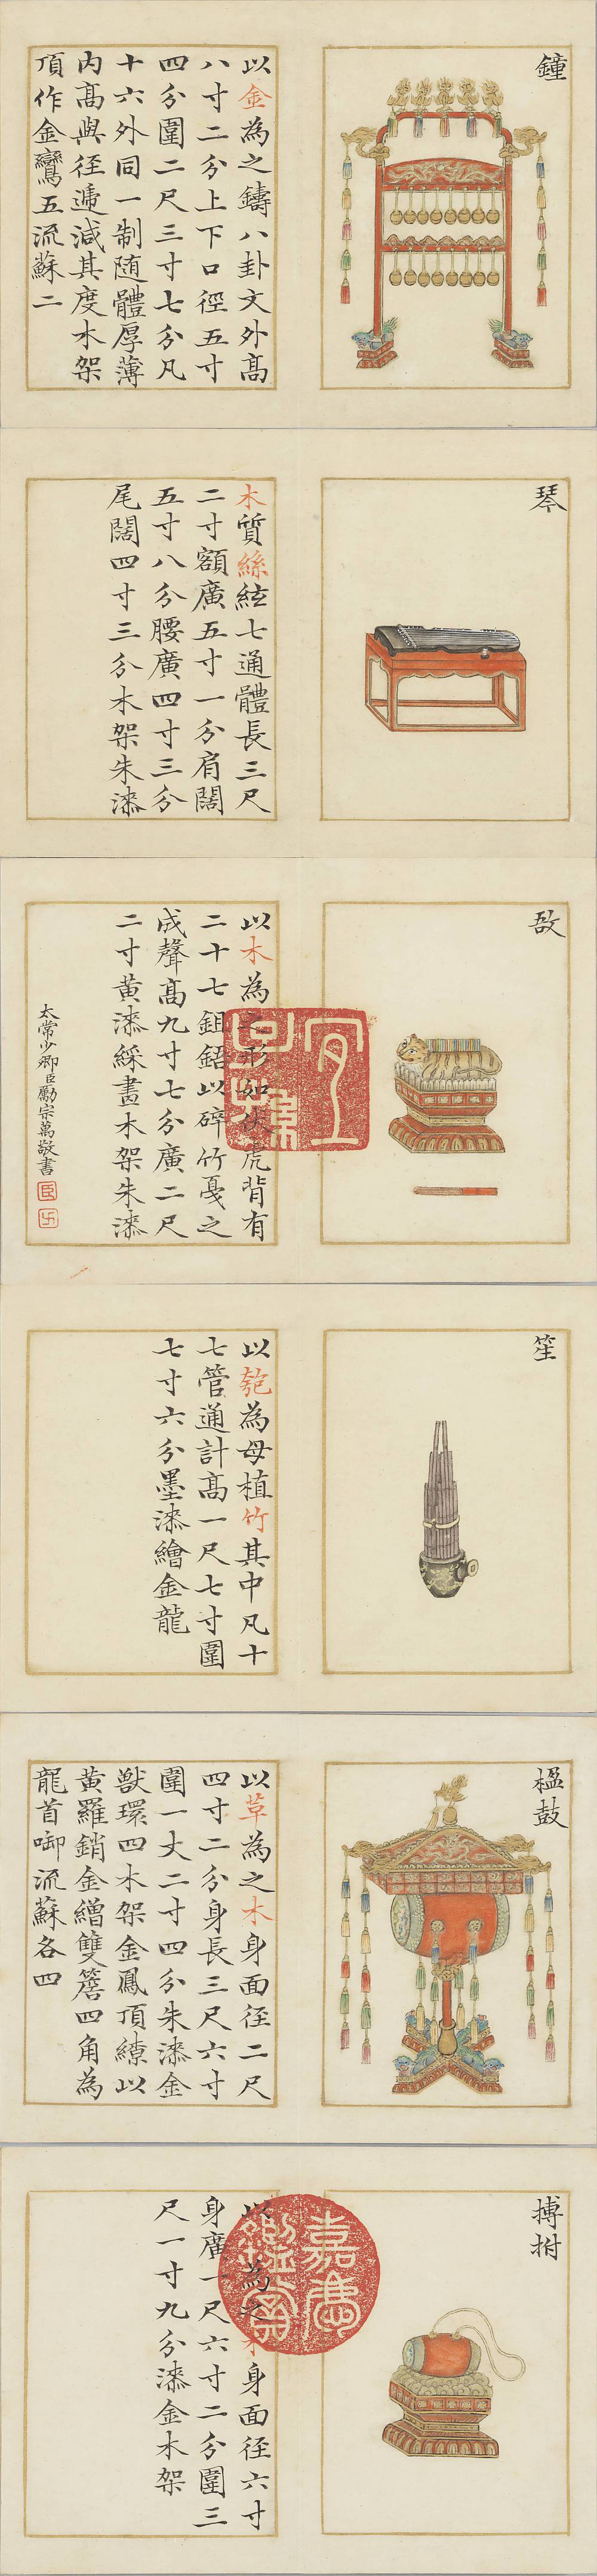 鐘
以金為之鑄八卦文外高
八寸二分上下口徑五寸
四分圍二尺三寸七分凡
十六外同一制随體厚薄
內高與徑遞減其度木架
頂作金鸞五流蘇二
琴
木質絲絃七通體長三尺
二寸額廣五寸一分肩闊
五寸八分腰廣四寸三分
尾闊四寸三分木架朱漆
敔
以木為之形如伏虎背有
二十七鉏鋙以碎竹戞之
成聲高九寸七分廣二尺
二寸黃漆綵畫木架朱漆
太常少卿臣勵宗萬敬書
笙
以匏為母植竹其中凡十
七管通計高一尺七寸圍
七寸六分墨漆繪金龍
楹鼓
以革為之木身面徑二尺
四寸二分身長三尺六寸
圍一丈二寸四分朱漆金
獸環四木架金鳳頂繚以
黃羅銷金繒雙簷四角為
龍首啣流蘇各四
搏拊
以為之木身面徑六寸
身廣一尺六寸二分圍三
尺一寸九分漆金木架